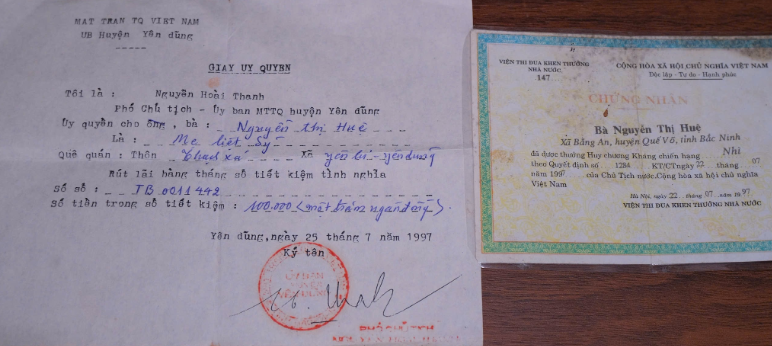 MAT TRAN TQ VIET NAM
UB Huyện Yên dũng
-----
GIAY UY QUYEN
Tôi là : Nguyễn Hoài Thanh
Phó Chủ tịch - Ủy ban MTTQ huyện Yên dũng
Ủy quyền cho ông, bà : Nguyễn thị Huệ
Là : Mẹ liệt sỹ
Quê quán : Thôn Xã yên dũng
Rút lãi hàng tháng số tiết kiệm tình nghĩa
Số sổ : TB 0011442
Số tiền trong sổ tiết kiệm : 100.000 (một trăm ngàn đồng).
Yên dũng, ngày 25 tháng 7 năm 1997
Ký tên
VIỆN THI ĐUA KHEN THƯỞNG
NHÀ NƯỚC
147
CỘNG HÒA XÃ HỘI CHỦ NGHĨA VIỆT NAM
Độc lập - Tự do - Hạnh phúc
CHỨNG NHẬN
Bà Nguyễn Thị Huệ
Xã Bằng An, huyện Quế Võ, tỉnh Bắc Ninh
đã được thưởng Huy chương Kháng chiến hạng Nhì
theo Quyết định số 1284 KT/CT ngày 22 tháng 07
năm 1997 của Chủ Tịch nước Cộng hòa xã hội chủ nghĩa
Việt Nam
Hà Nội, ngày 22 tháng 07 năm 1997
VIỆN THI ĐUA KHEN THƯỞNG NHÀ NƯỚC